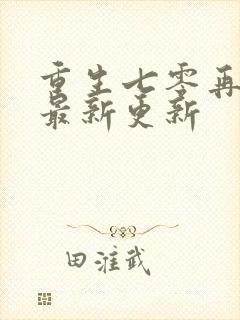 重生七零再
最新更新
田淮武